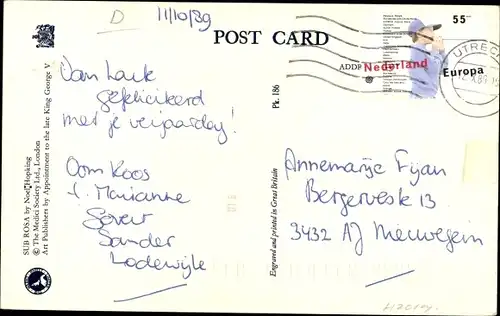 D
11/10/89
POST CARD
55
ADDR
Nederland
Europa
UTRECHT
Van harte
gefeliciteerd
met je verjaardag!
Oom Koos
t. Marianne
Govert
Sander
Lodewijk
Annemarije Fijan
Bergerveste 13
3432 AJ Nieuwegein
SUB ROSA by Noel Hopking
© The Medici Society Ltd., London
Art Publishers by Appointment to the late King George V
Pk. 186
Engraved and printed in Great Britain